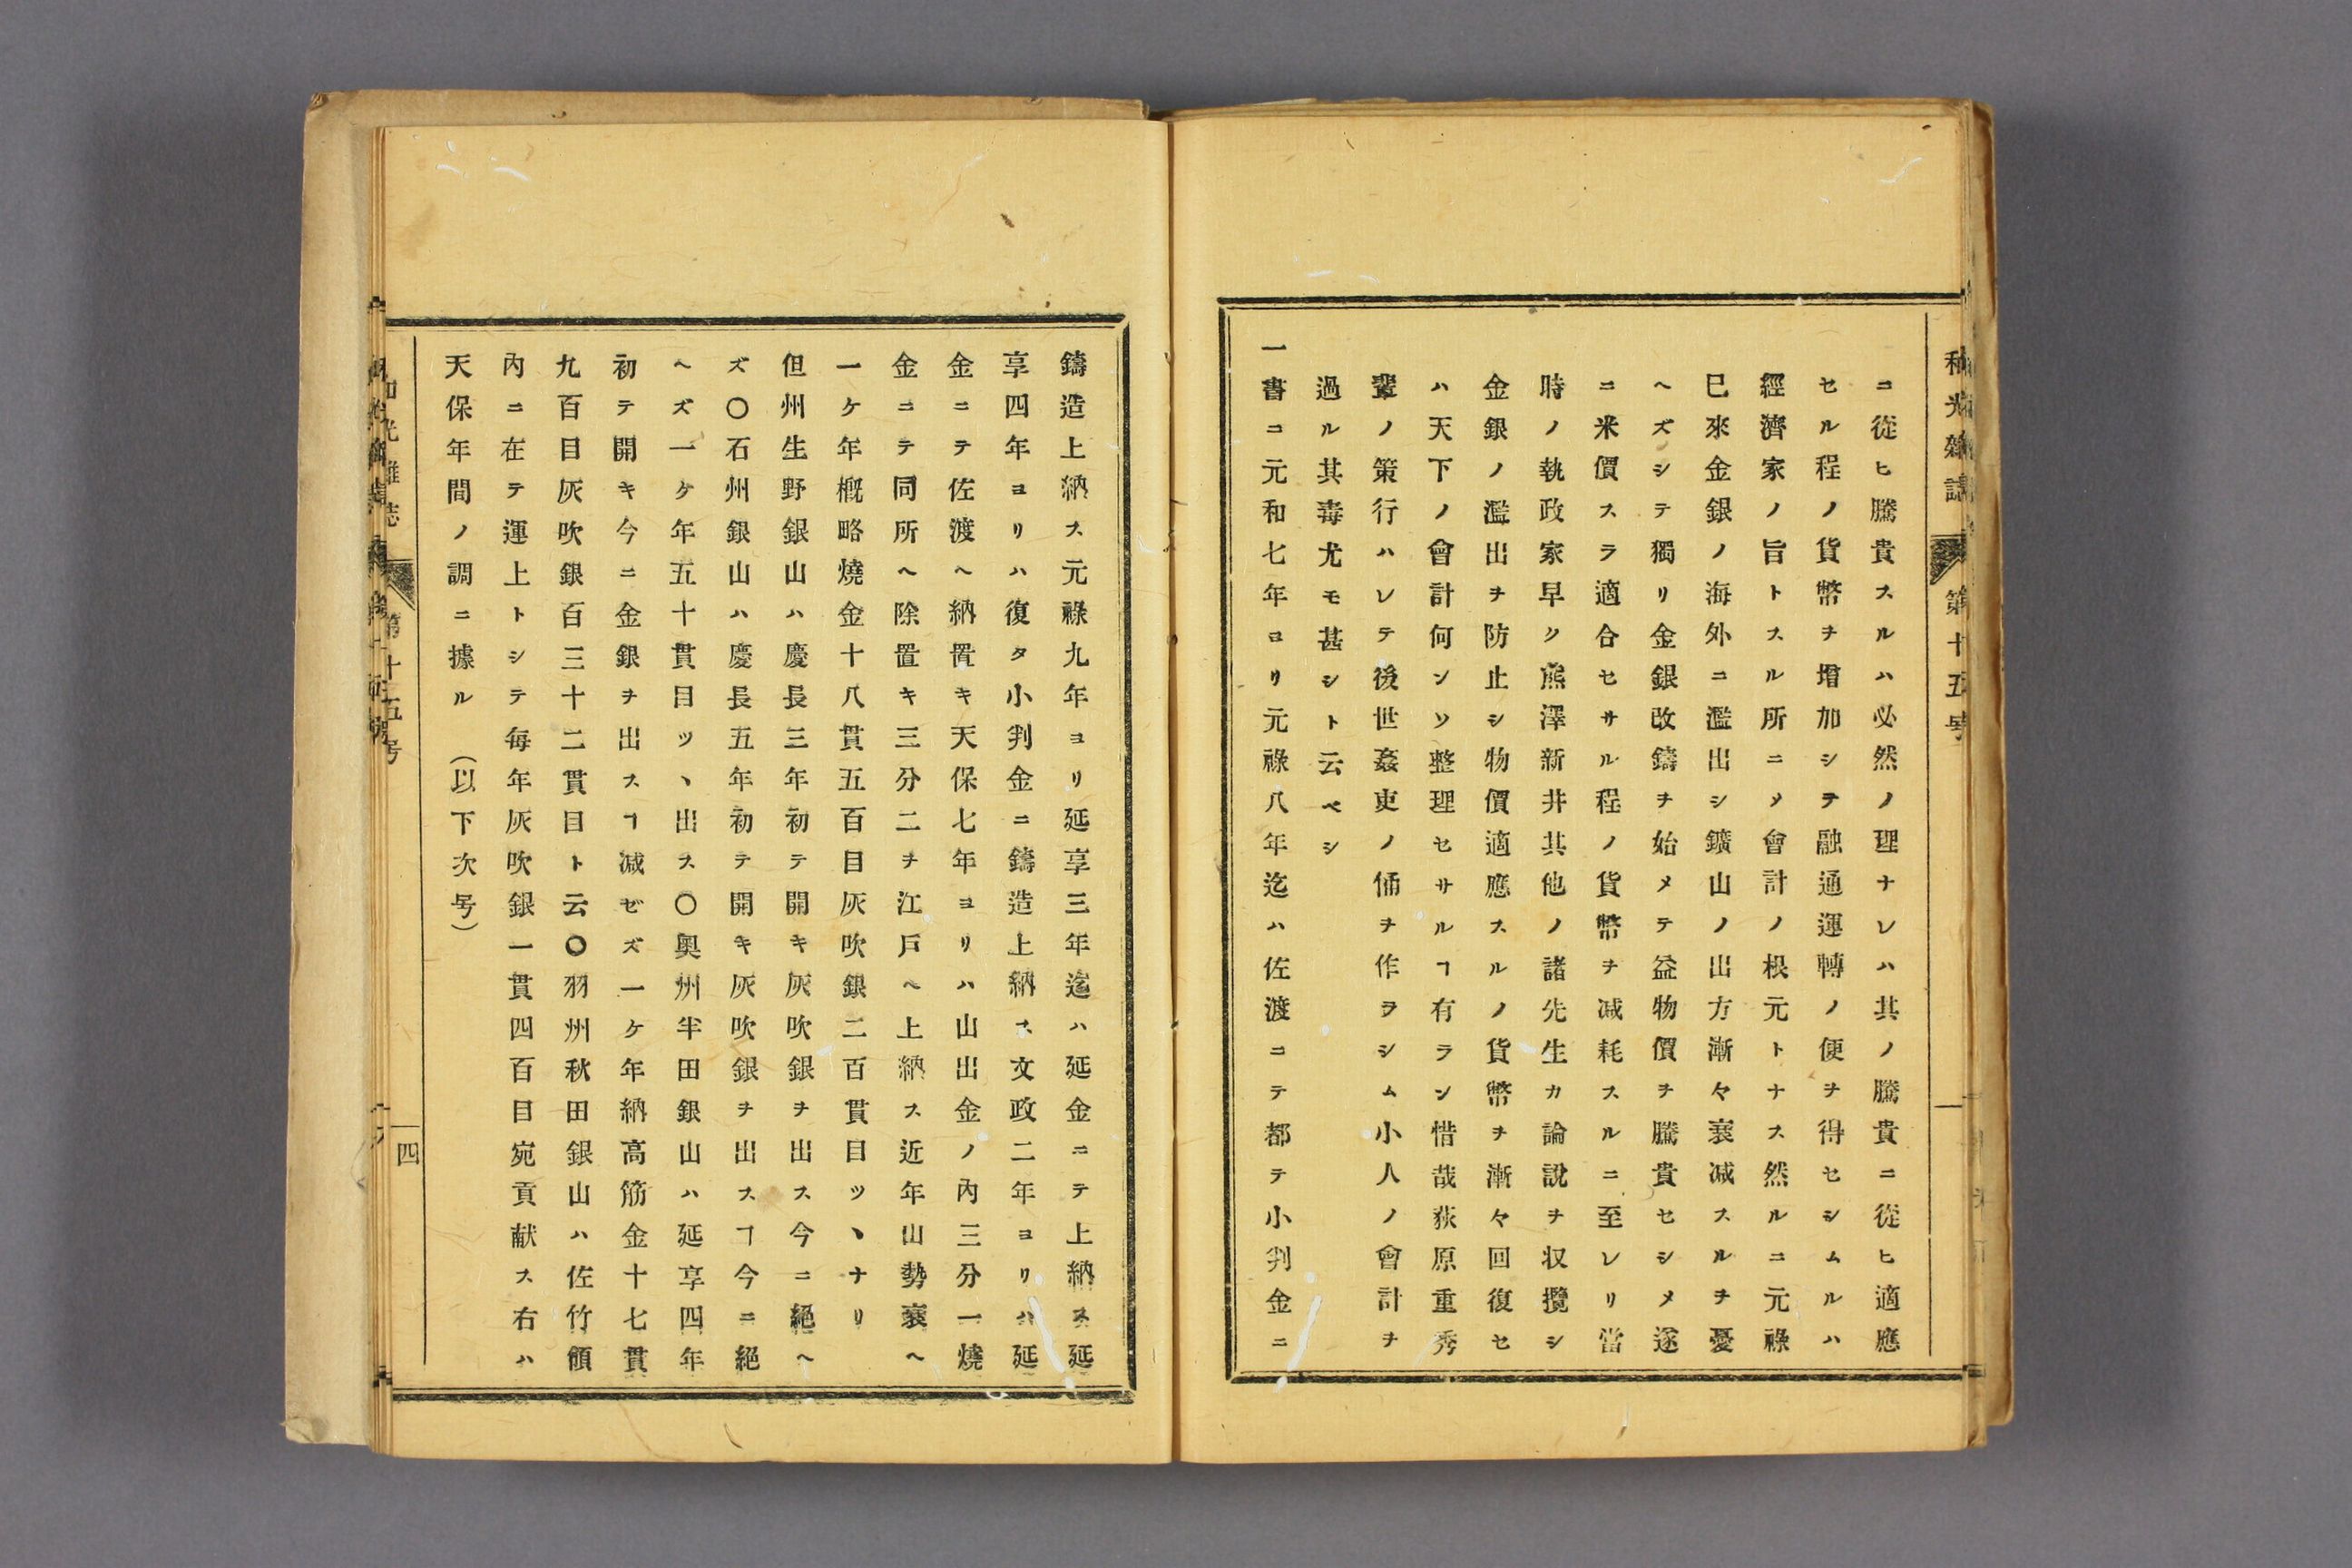 和光雜誌 第十五号
ニ從ヒ騰貴スルハ必然ノ理ナレハ其ノ騰貴ニ從ヒ適應
セル程ノ貨幣ヲ増加シテ融通運轉ノ便ヲ得セシムルハ
經濟家ノ旨トスル所ニメ會計ノ根元トナス然ルニ元祿
巳來金銀ノ海外ニ濫出シ鑛山ノ出方漸々衰减スルヲ憂
ヘズシテ獨リ金銀改鑄ヲ始メテ益物價ヲ騰貴セシメ遂
ニ米價スラ適合セサル程ノ貨幣ヲ减耗スルニ至レリ當
時ノ執政家早ク熊澤新井其他ノ諸先生カ論說ヲ収攬シ
金銀ノ濫出ヲ防止シ物價適應スルノ貨幣ヲ漸々回復セ
ハ天下ノ會計何ンソ整理セサルヿ有ラン惜哉荻原重秀
輩ノ策行ハレテ後世姦吏ノ俑ヲ作ラシム小人ノ會計ヲ
過ル其毒尤モ甚シト云ベシ
一書ニ元和七年ヨリ元祿八年迄ハ佐渡ニテ都テ小判金ニ
鑄造上納ス元祿九年ヨリ延享三年迄ハ延金ニテ上納ス延
享四年ヨリハ復タ小判金ニ鑄造上納ス文政二年ヨリハ延
金ニテ佐渡ヘ納置キ天保七年ヨリハ山出金ノ內三分一燒
金ニテ同所ヘ除置キ三分二ヲ江戸ヘ上納ス近年山勢衰ヘ
一ケ年概略燒金十八貫五百目灰吹銀二百貫目ツヽナリ
但州生野銀山ハ慶長三年初テ開キ灰吹銀ヲ出ス今ニ絕ヘ
ズ〇石州銀山ハ慶長五年初テ開キ灰吹銀ヲ出スヿ今ニ絕
ヘズ一ケ年五十貫目ツヽ出ス〇奥州半田銀山ハ延享四年
初テ開キ今ニ金銀ヲ出スヿ减ゼズ一ケ年納高筋金十七貫
九百目灰吹銀百三十二貫目ト云〇羽州秋田銀山ハ佐竹領
內ニ在テ運上トシテ每年灰吹銀一貫四百目宛貢献ス右ハ
天保年間ノ調ニ據ル （以下次号）
和光雜誌 第十五号 四